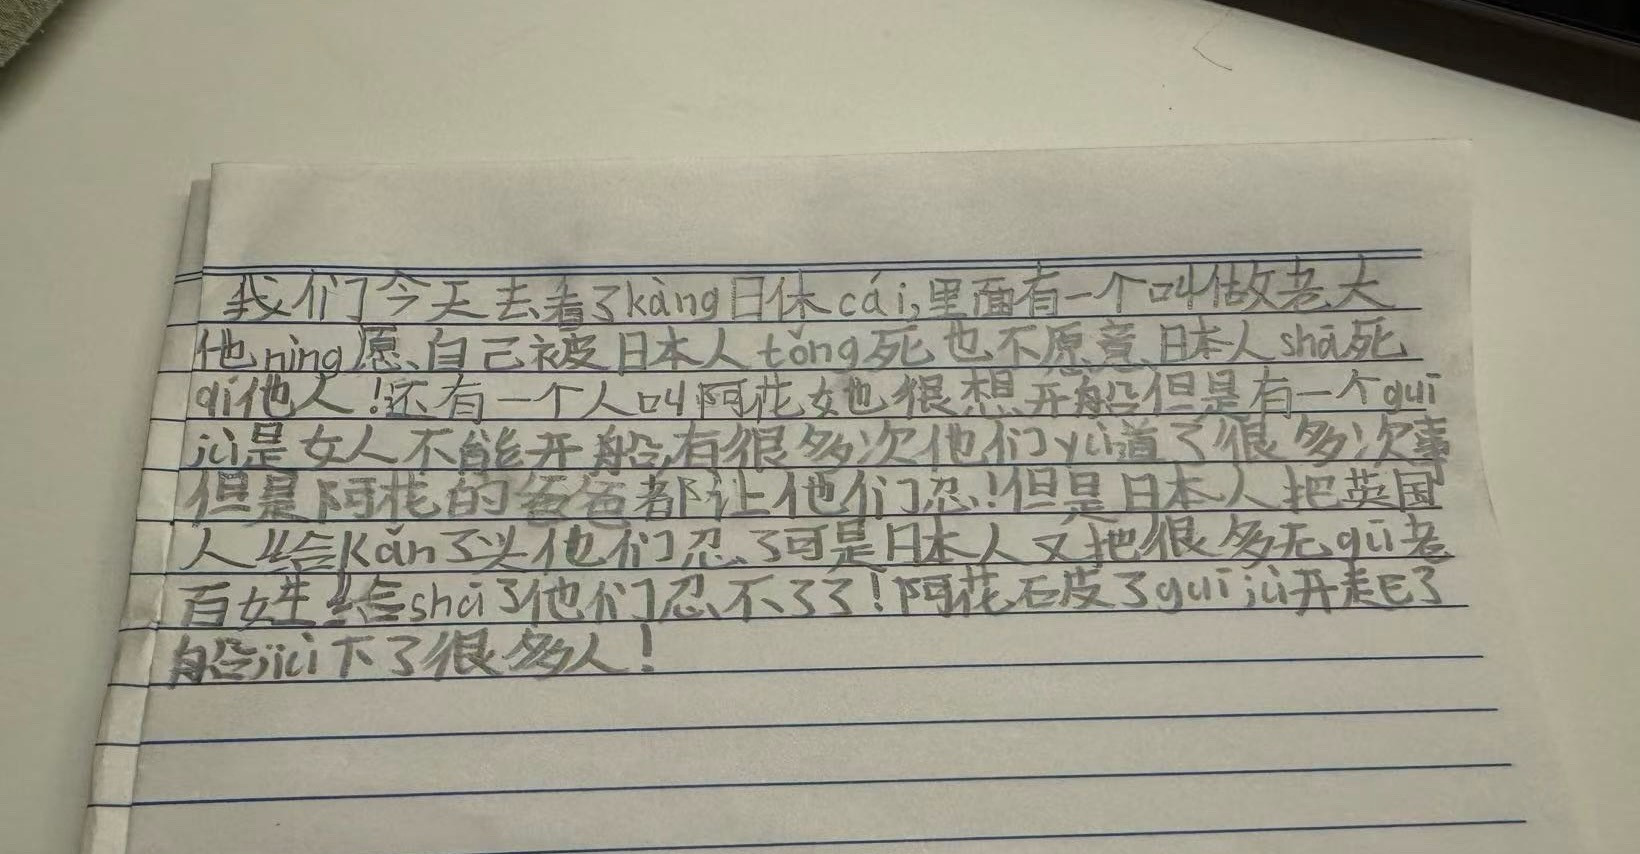 我们今天去看了kàng日休cái,里面有一个叫做老大
他nìng愿自己被日本人tǒng死也不愿意日本人shā死
qí他人!还有一个人叫阿花她也很想开船但是有一个guī
jù是女人不能开船,有很多次他们yù道了很多次事
但是阿花的爸爸都让他们忍!但是日本人把英国
人给kǎn了头他们忍了可是日本人又把很多无gū老
百姓给shā了他们忍不了了!阿花破了guī jù开起了
船jiù下了很多人!